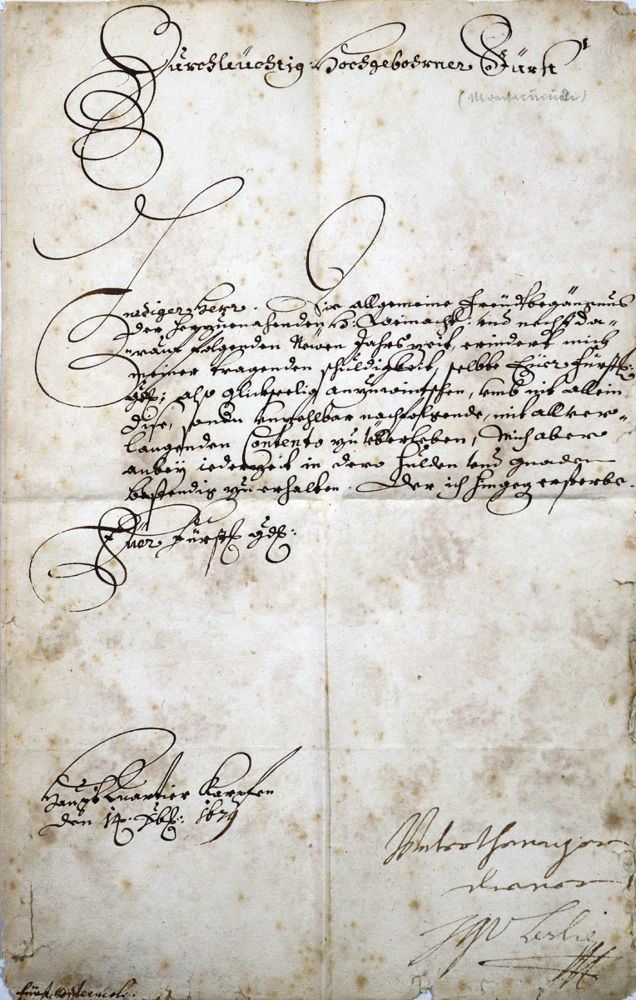 Durchleuchtig Hochgebohrner Fürst
Gnädiger Herr. Die allgemeine Freüdtbegängnus
der herzuenahenden H: Weinacht: und nechst da-
rauf folgenden Neuen Jahrs zeit, erindert mich
meiner tragenden schuldigkeit, selbte Eüer Fürstl:
Gd: also glickseelig anzuwintschen, umb nit allein
dise, sondern unzehlbar nachfolgende, mit all ver-
langenden Contento zu überleben, Mich aber
anbey iederzeit in dero hulden und gnaden
bestendig zu erhalten. Der ich hingeg ersterbe.
Eüer Fürstl: Gd:
Haubt Quartier Karpfen
den 14. Xb: 1679
Unterthenniger
diener
Leslie